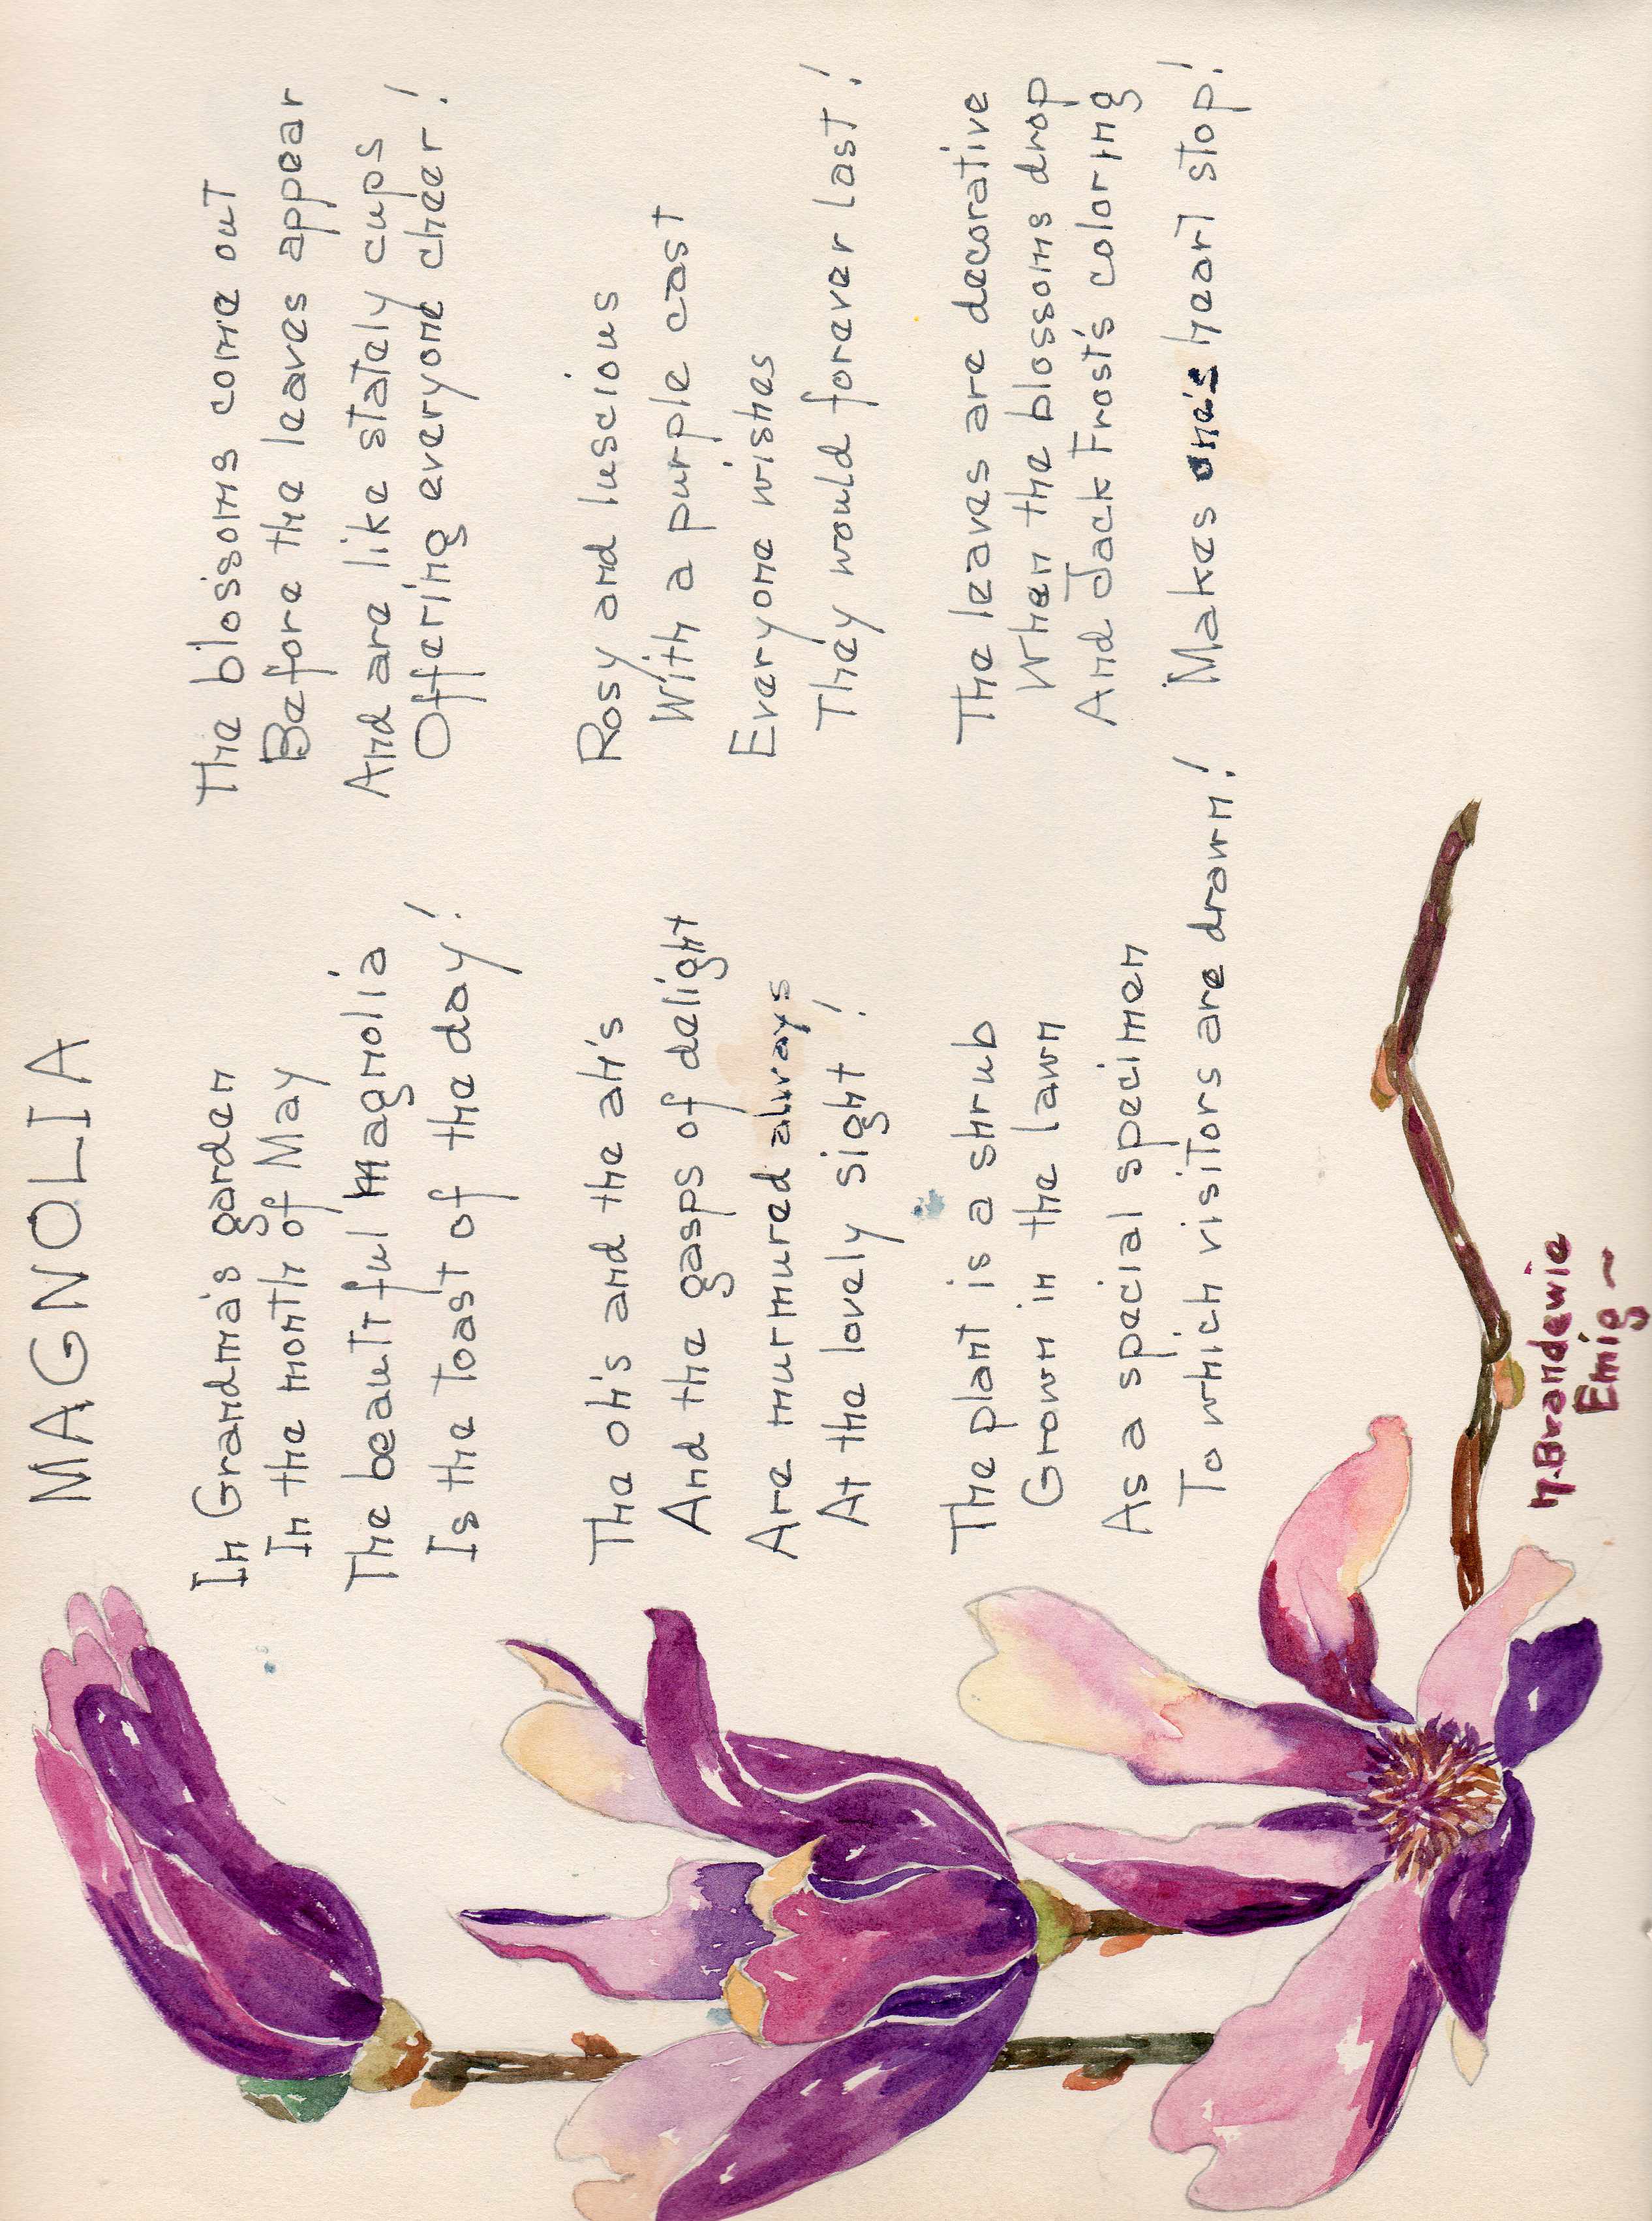 MAGNOLIA
In Grandma's garden
In the month of May
The beautiful magnolia
Is the toast of the day!
The oh's and the ah's
And the gasps of delight
Are murmured always
At the lovely sight!
The plant is a shrub
Grown in the lawn
As a special specimen
To which visitors are drawn!
The blossoms come out
Before the leaves appear
And are like stately cups
Offering everyone cheer!
Rosy and luscious
With a purple cast
Everyone wishes
They would forever last!
The leaves are decorative
When the blossoms drop
And Jack Frost's coloring
Makes one's heart stop!
M. Brandewie
Emig ~